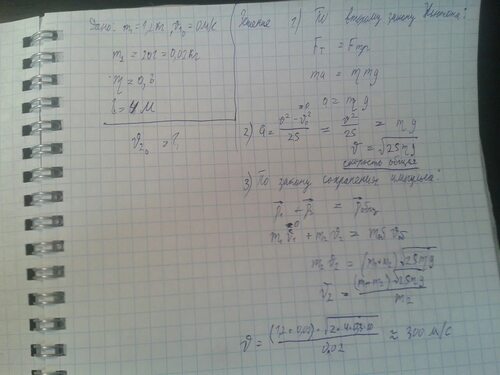 Дано: m₁=1,2кг, v₀=0м/с
m₂=20г=0,02кг
S=4м
v₂₀=?
Решение 1) По второму закону Ньютона:
Fт = Fтр.
ma = ηmg
a = ηg
2) a = (v²-v₀²)/2S = v²/2S = ηg
v = √2Sηg
скорость общая
3) По закону сохранения импульса:
p₁ + p₂ = pобщ
m₁v₁ + m₂v₂ = mобvоб
m₂v₂ = (m₁+m₂)√2Sηg
v₂ = (m₁+m₂)√2Sηg / m₂
v = (1,2+0,02)·√2·4·0,3·10 / 0,02 ≈ 300 м/с